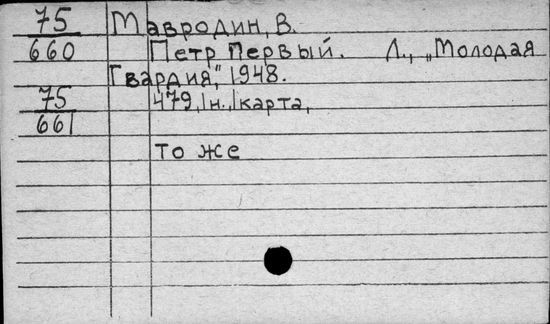 75 Мавродин, В.
660 Петр Первый. Л., „Молодая
Гвардия," 1948.
75 479, 1н., 1 карта,
661
то же